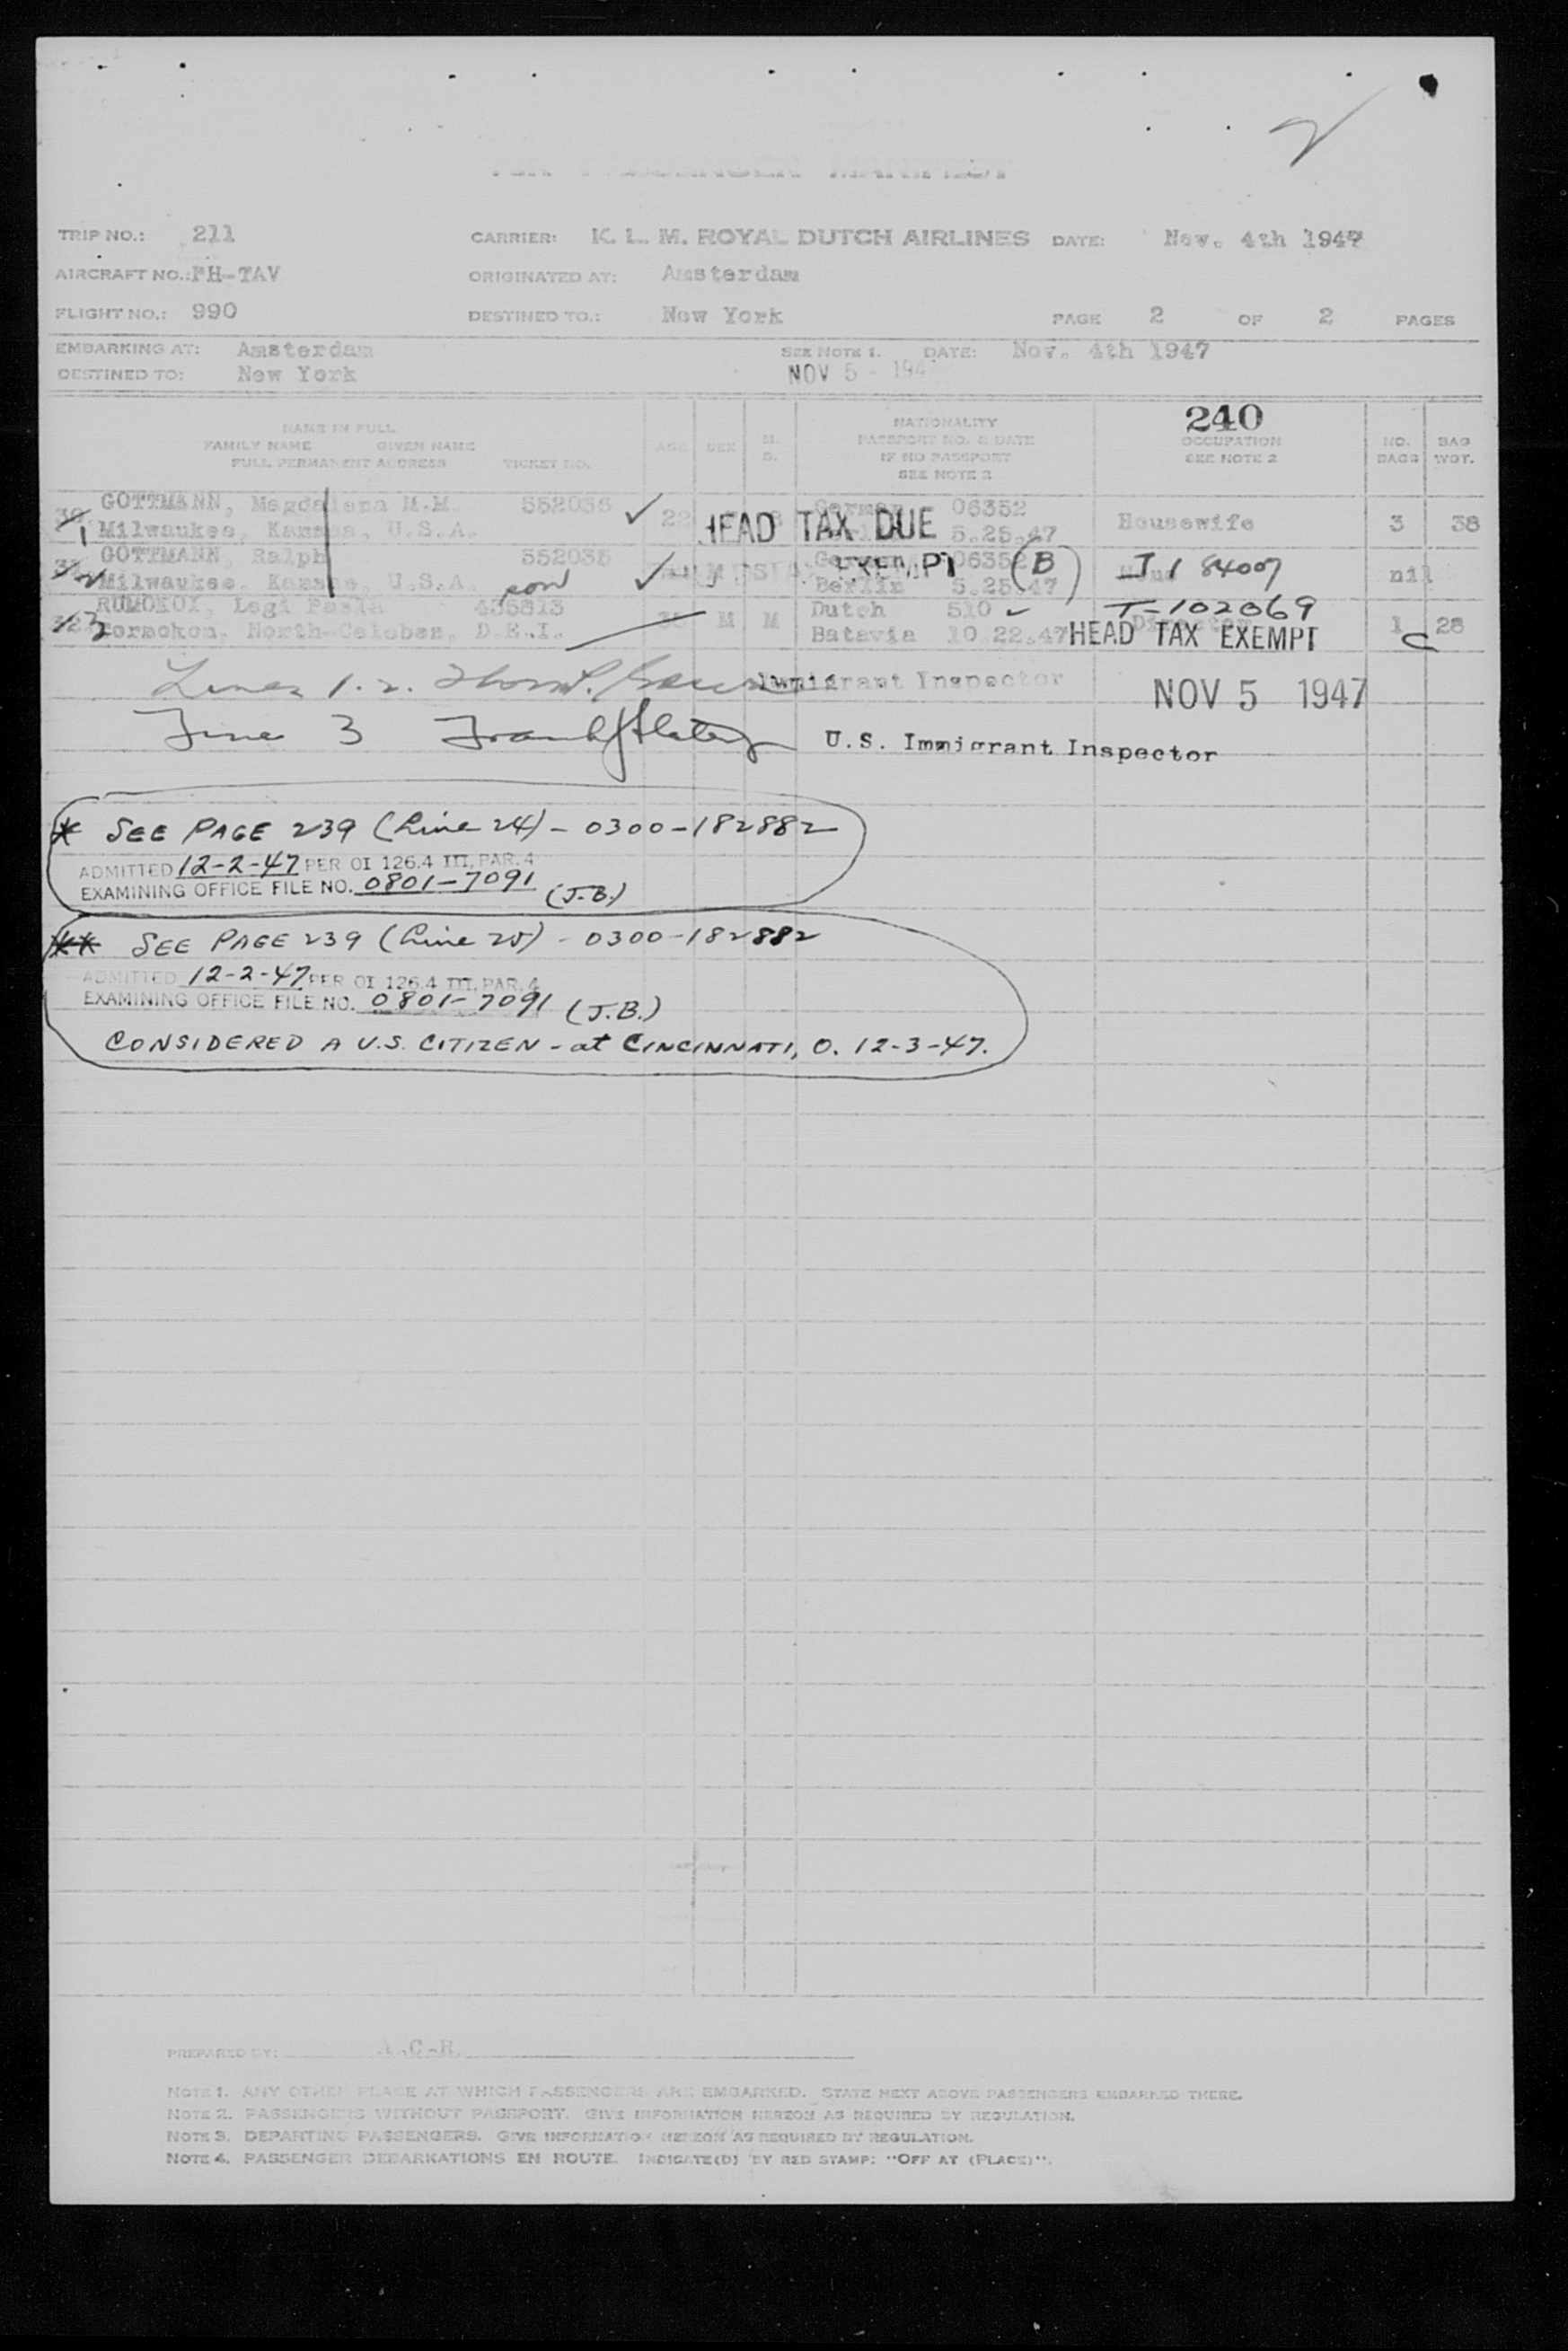 AIR PASSENGER MANIFEST
TRIP NO.: 211 CARRIER: K. L. M. ROYAL DUTCH AIRLINES DATE: Nov. 4th 1947
AIRCRAFT NO.: PH-TAV ORIGINATED AT: Amsterdam
FLIGHT NO.: 990 DESTINED TO.: New York PAGE 2 OF 2 PAGES
EMBARKING AT: Amsterdam SEE NOTE 1. DATE: Nov. 4th 1947
DESTINED TO: New York NOV 5 - 194
240
NAME IN FULL
FAMILY NAME GIVEN NAME
FULL PERMANENT ADDRESS TICKET NO.
AGE SEX M. S.
NATIONALITY
PASSPORT NO. & DATE
IF NO PASSPORT
SEE NOTE 2
OCCUPATION
SEE NOTE 2
NO. BAGS
BAG WGT.
GOTTMANN, Magdalena M.M. 552036 German 06352
1 Milwaukee, Kansas, U.S.A. 22 HEAD TAX DUE 5.25.47 Housewife 3 38
GOTTMANN, Ralph 552035 German 06352
Milwaukee, Kansas, U.S.A. son M EXEMPT (B) Berlin 5.25.47 184007 nil
RUMOKOY, Legi 435813 Dutch 510 T-102069
3 North-Celebes, D.E.I. M M Batavia 10.22.47 HEAD TAX EXEMPT Director 1 C 28
Lines 1.2. Immigrant Inspector NOV 5 1947
Line 3 U.S. Immigrant Inspector
* SEE PAGE 239 (Line 24) - 0300-182882
ADMITTED 12-2-47 PER OI 126.4 III, PAR. 4
EXAMINING OFFICE FILE NO. 0801-7091 (J.B.)
** SEE PAGE 239 (Line 25) - 0300-182882
ADMITTED 12-2-47 PER OI 126.4 III, PAR. 4
EXAMINING OFFICE FILE NO. 0801-7091 (J.B.)
CONSIDERED A U.S. CITIZEN - at CINCINNATI, O. 12-3-47.
PREPARED BY: A.C.H.
NOTE 1. ANY OTHER PLACE AT WHICH PASSENGERS ARE EMBARKED. STATE NEXT ABOVE PASSENGERS EMBARKED THERE.
NOTE 2. PASSENGERS WITHOUT PASSPORT. GIVE INFORMATION HEREON AS REQUIRED BY REGULATION.
NOTE 3. DEPARTING PASSENGERS. GIVE INFORMATION HEREON AS REQUIRED BY REGULATION.
NOTE 4. PASSENGER DEBARKATIONS EN ROUTE. INDICATE(D) BY RED STAMP: "OFF AT (PLACE)".